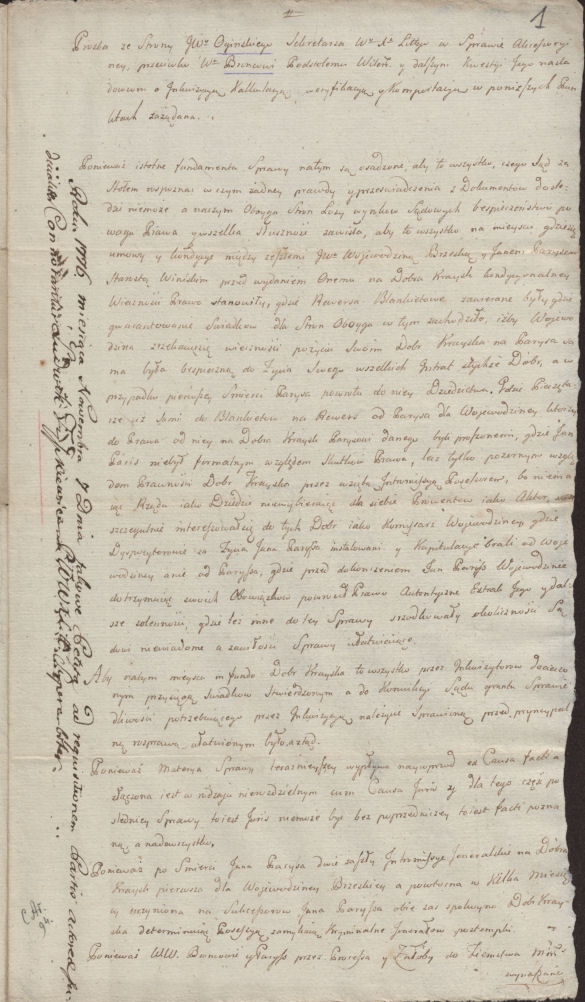 1
Prozba ze Strony JWo Ogińskiego Sekretarza Wo Xa Littgo w Sprawie
ney, przeciwko Wu Brunowi Podstolemu Wileń. y dalszym Kwestyi Jego nasta
dowcom o Inkwizycyą Kalkulacyą weryfikacyą y Komportacyą w ponizszych Pun
ktach zaządana.
Ponieważ istotne fundamenta Sprawy natym są osadzone, aby to wszystko, czego Sąd za
Stołem rospoznać w czym żadney prawdy y przeswiadczenia z Dokumentow docho-
dzi niemoże a naszym Oboyga Stron Losy wyrokow Sądowych bespieczeństwo po
waga Prawa y wszelka słuszność zawisła, aby to wszystko na mieyscu, gdzie
umowy y kondycye między zeszłemi JWu Wojewodziną Brzeską y Janem Paryssem
Starostą Wińskim przed wydaniem Onemu na Dobra Krayck kondycyonalney
Wieczności Prawa stanowiły, gdzie Rewersa Blankietowe zawierane były, gdzie
gwarantowane Swiadkow dla Stron Oboyga w tym zachodziło, iżby Wojewo
dzina zrzekaiącą wieczności pozyciu Swoim Dobr Krayska na Parysa sa
ma była bespieczną do Zycia Swego wszelkich Intrat z tychże Dobr, a w
przypadku pierwszey Smierci Parysa powrotu do niey Dziedzictwa. Gdzie Pieczęta
rze iuż Sami do Blankietow na Rewers od Parysa dla Wojewodziney
do Prawa od niey na Dobra Krayck Paryssowi danego byli proszonemi, gdzie Jan
Paris niebył formalnym względem Skutku Prawa, lecz tylko pozornym wzglę
dem Prawności Dobr Krayska przez wziętą Intromissyą Possessorem, bo nie
iąc Rządu iako Dziedzic niewybieraiąc dla siebie Prowentow iako Aktor,
szczegulnie interessowałsię do tych Dobr iako Komisarz Wojewodziney, gdzie
Dyspozytorowie za Zycia Jana Paryssa instalowani y Kapitulacye brali od Woje
wodziney a nie od Paryssa, gdzie przed dokończeniem Jan Paryss Wojewodzinie
dotrzymuiąc swoich Obowiązkow powrocił Prawo Autentyczne Extrakt Jego y dal-
sze solennosci, gdzie też inne do tey Sprawy srzodkowały okoliczności Są
dowi niewiadome a zawiłości Sprawy ułatwiaiące.
Aby natym mieyscu in fundo Dobr Krayska to wszystko przez Inkwizytorow doniesio
nym przysięgą Swiadkow stwierdzonym a do konwikcyi Sądu gruntu Sprawie
dliwości potrzebuiącego przez Inkwizycyą należycie Sprawioną przed pryncypal
ną rosprawą ułatwionym było, a ztąd.
Ponieważ Materya Sprawy teraznieyszey wypływa nayprzod ex Causa facti a
złączona iest w rodzaiu nierozdzielnym cum Causa Juris że dla tego część po
slednicy Sprawy to iest Juris niemoże być bez poprzedniczey to iest facti pozna
ną, a nadewszystko,
Ponieważ po Smierci Jana Parysa dwie zaszły Intromissye Jeneralskie na Dobra
Krayck pierwsza dla Wojewodziney Brzeskiey a powtorna w Kilka Miesię
cy uczyniona na Sukcessorow Jana Paryssa obie zas spokoyną Dobr Kray
ska determinuiąc Possessyą zamykaią Kryminalne Jenerałow postempki.
Ponieważ WW. Brunowie y Paryss przez Processa y Załoby do Ziemstwa Miń:
wynaszane
Roku 1776. miesiąca Nowembra 7 Dnia takowe Petita ad requisitionem Partis Actoreae